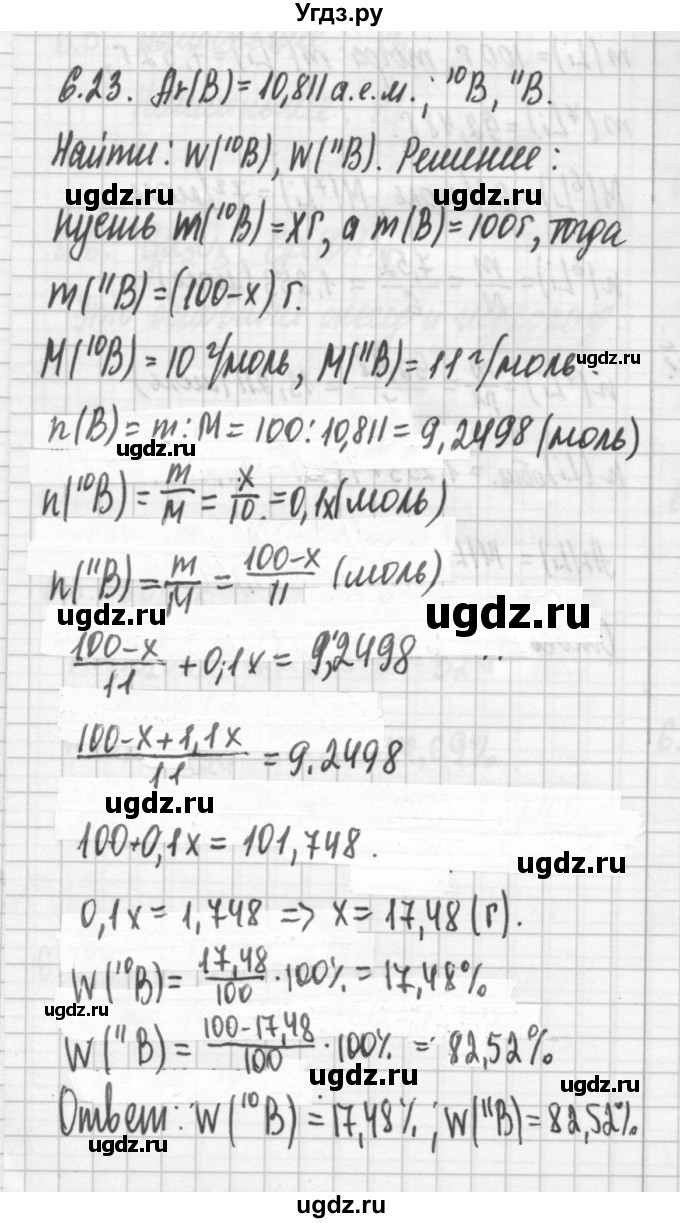 Угдз.ру
6.23. Ar(B)=10,811 а.е.м.; ¹⁰B, ¹¹B.
Найти: W(¹⁰B), W(¹¹B). Решение:
ugdz.ru ugdz.ru
пусть m(¹⁰B)=xг, а m(B)=100г, тогда
m(¹¹B)=(100-x) г.
M(¹⁰B)=10 г/моль, M(¹¹B)=11 г/моль.
ugdz.ru
n(B)= m:M=100:10,811=9,2498 (моль)
ugdz.ru
n(¹⁰B)= m/M = x/10 =0,1x(моль)
n(¹¹B)= m/M = 100-x/11 (моль)
ugdz.ru
100-x/11 +0,1x= 9,2498
100-x+1,1x/11 =9.2498
ugdz.ru
100+0,1x= 101,748.
ugdz.ru
0,1x= 1,748 => x= 17,48 (г).
W(¹⁰B)= 17,48/100 ·100%=17,48%
ugdz.ru
W(¹¹B)= 100-17,48/100 ·100% = 82,52%
ugdz.ru ugdz.ru
Ответ: W(¹⁰B)=17,48%; W(¹¹B)=82,52%
ugdz.ru
ugdz.ru